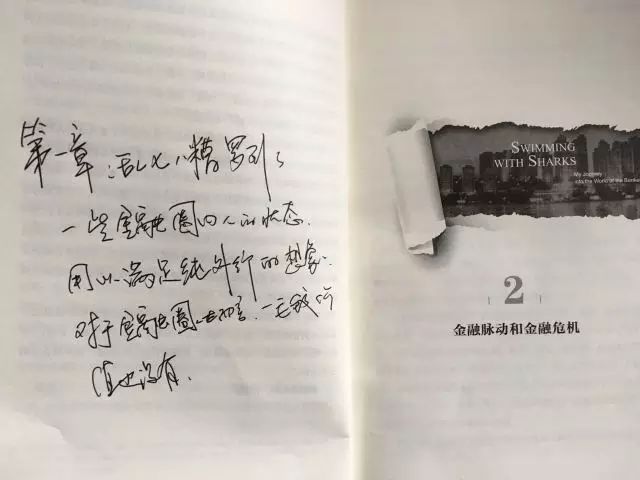 第一章:乱七八糟罗列了
一些金融圈内人的状态.
用以满足纯外行的想象.
对于金融圈也而言.一毛钱价
值也没有.
SWIMMING
WITH SHARKS
My Journey
into the World of the Banke
2
金融脉动和金融危机